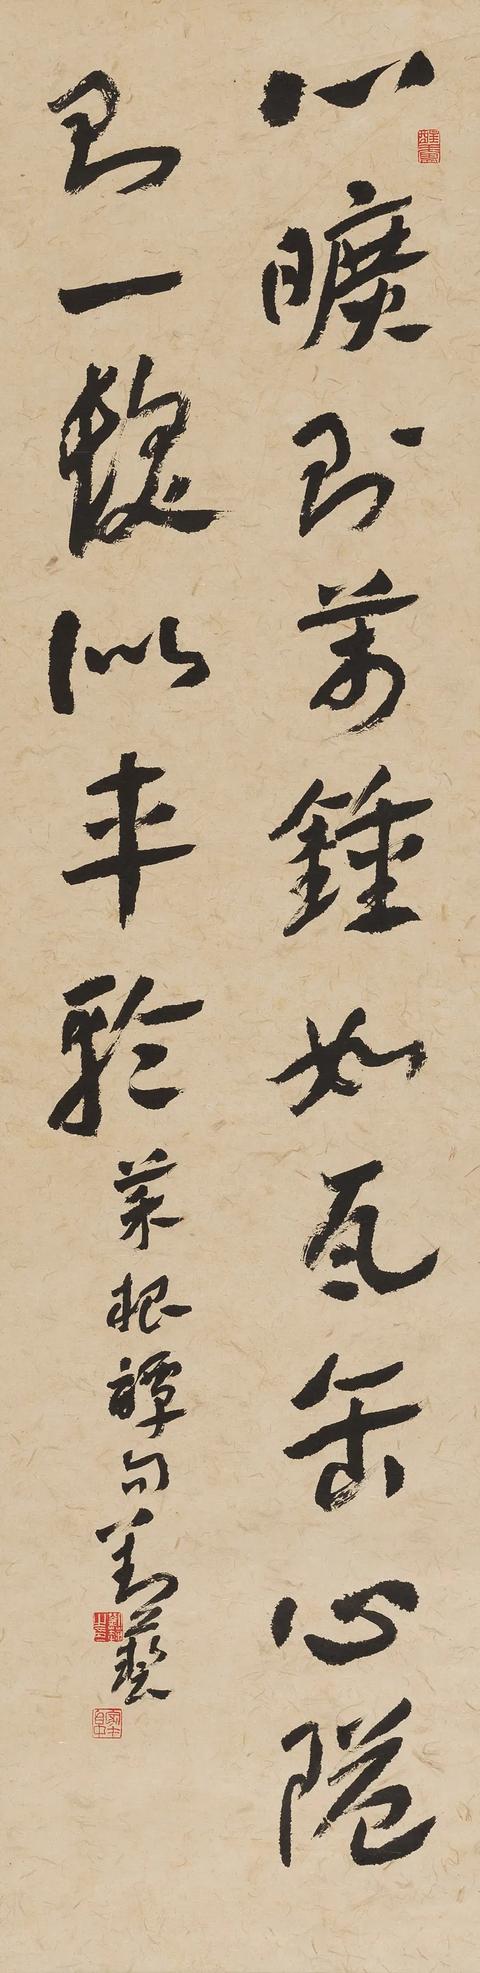 心曠則萬鍾如瓦缶心隘
則一髮似車輪菜根譚句劉藝